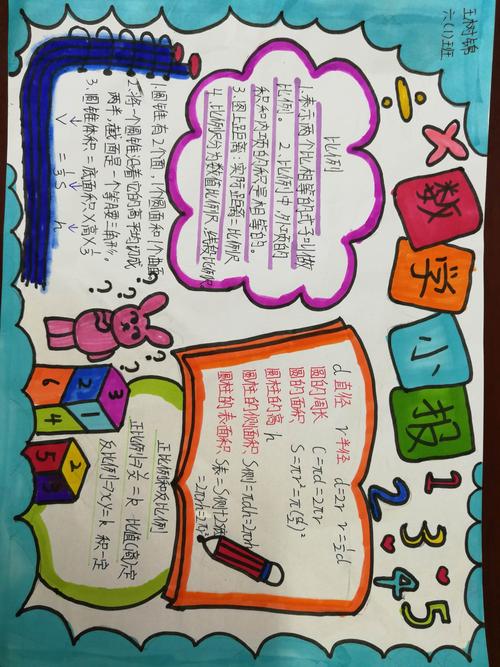 王树锦
六(1)班
数学小报
÷ ×
1 2 3 4 5
比例
1.表示两个比相等的式子叫做
比例。 2.比例中,外项的
积和内项的积是相等的。
3.图上距离:实际距离=比例尺
4.比例尺分为数值比例尺、线段比例尺
1.圆锥有2个面,1个圆面积1个曲面
2.将一个圆锥沿着它的高平均切成
两半,截面是一个等腰三角形。
3.圆锥体积=底面积×高×1/3
V = 1/3 S h
d 直径 r 半径 d=2r r=1/2d
圆的周长 C=πd=2πr
圆的面积 S=πr²=π(d/2)²
圆柱的高 h
圆柱的侧面积 S侧=πdh=2πrh
圆柱的表面积 S表=S侧+2
=2πrh+2πr²
? ? ? ? ?
3 2 1 6 4
2 5 3
正比例和反比例
正比例→y/x=k 比值(商)一定
反比例→xy=k 积一定